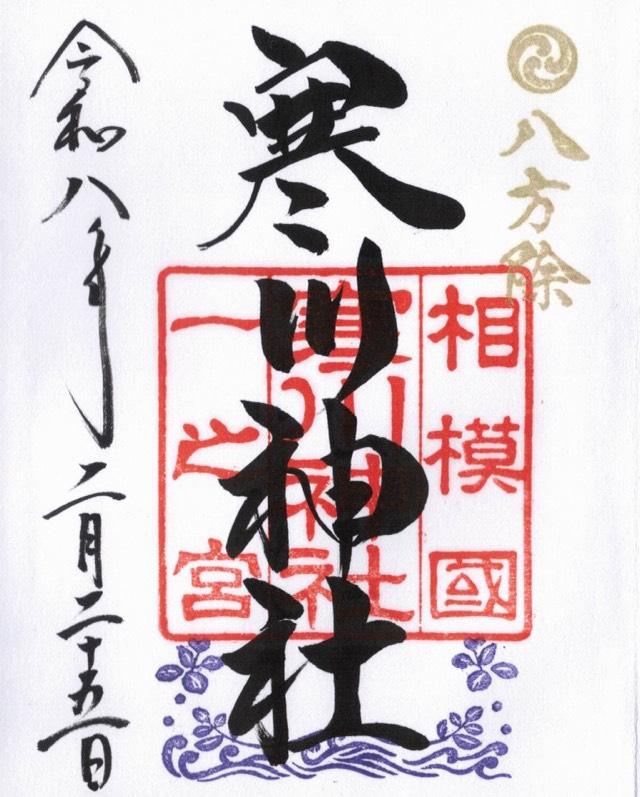 八方除
相模國
寒川神社
一之宮
寒川神社
令和八年二月二十五日